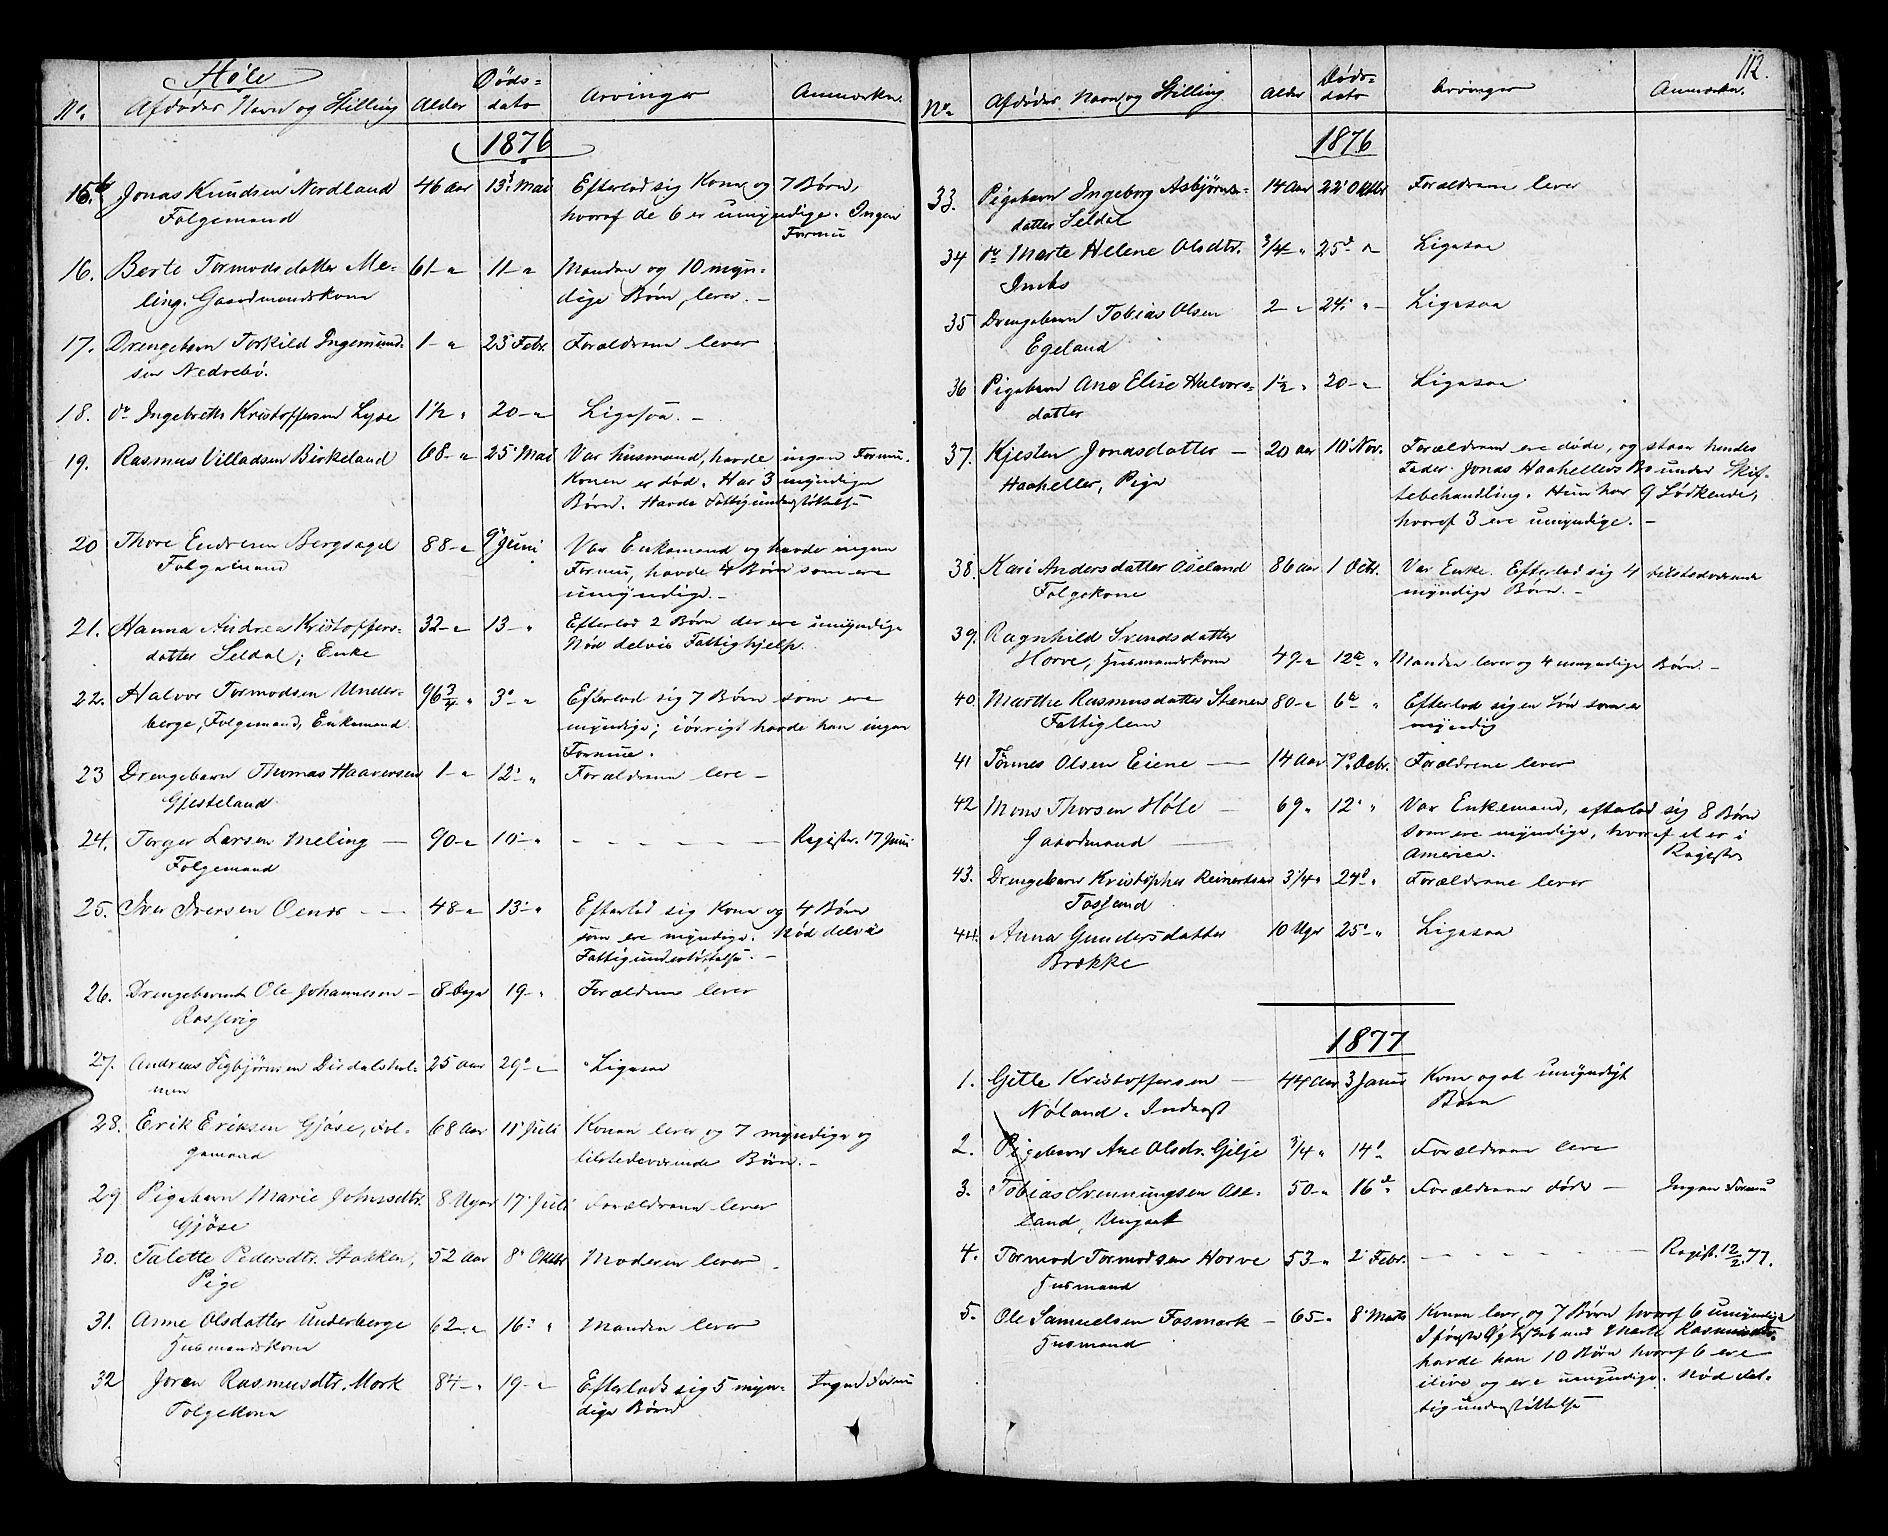 Høle
No. Afdødes Navn og Stilling Alder Døds-dato Arvinger Anmærkn.
1876
15.b Jonas Knudsen Nordland 46 Aar 13d Mai Efterlod sig Kone og 7 Børn,
Folgemand hvoraf de 6 er umyndige. Ingen
Formue
16. Berte Tormodsdatter Me- 61 - " 11 - " Manden og 10 myn-
ling. Gaardmandskone dige Børn lever. -
17. Drengebarn Torkild Ingemund- 1 - " 23 Febr. Forældrene lever
sen Nedrebø.
18. do Ingebreth Kristoffersen Lyse 1 1/2 " 20 - " Ligesaa. -
19. Rasmus Villadsen Birkeland 68 - " 25 Mai Var husmand, havde ingen Formue.
Konen er død. Har 3 myndige
Børn. Havde Fattigunderstøttelse
20 Thore Endresen Bergsagel 88 - " 9de Juni Var Enkemand og havde ingen
Folgemand Formue, havde 4 Børn som ere
umyndige. -
21. Hanna Andrea Kristoffers- 32 - " 13 - " Efterlod 2 Børn der ere umyndige
datter Seldal; Enke Nød delvis Fattighjelp.
22. Halvor Tormodsen Under- 96 3/4 " 3' - " Efterlod sig 7 Børn som ere
berge, Folgemand, Enkemand. myndige; iøvrigt havde han ingen
Formue.
23 Drengebarn Thomas Haaversen 1 - " 12' - " Forældrene lere -
Gjesteland
24. Torger Larsen Meling - 90 - " 10 - " - - - - - - Registr. 17 Juni
Folgemand
25. Iver Iversen Oenes - - 48 - " 13 - " Efterlod sig Kone og 4 Børn
som ere myndige. Nød delvis
Fattigunderstøttelse. -
26. Drengebarnet Ole Johannesen - 8 Dage 19 - " Forældrene lever
Rossevig
27. Andreas Sigbjørnsen Dirdalshol- 25 Aar 29' - " Ligesaa
men
28. Erik Eriksen Gjøse, Fol- 68 Aar 11' Juli Konen lever og 7 myndige og
gemand tilstedeværende Børn. -
29 Pigebarn Marie Johnsdtr. 8 Uger 17' Juli Forældrene lever
Gjøse
30. Talette Pedersdtr. Stokken, 52 Aar 8' Oktbr Moderen lever -
Pige
31. Anne Olsdatter Underberge 62 - " 16' " Manden lever
Husmandskone
32 Joren Rasmusdtr. Mork 84 - " 19 - " Efterlods sig 5 myn- Ingen Formue
Folgekone dige Børn
112.
No. Afdødes Navn og Stilling Alder Døds-dato Arvinger Anmærkn.
1876
33. Pigebarn Ingeborg Asbjørns- 14 Aar 22' Oktbr Forældrene lever
datter Seldal
34 do Marte Helene Olsdtr. 3/4 " 25d " Ligesaa
35 Drengebarn Tobias Olsen 2 " 24' " - Ligesaa
Egeland
36 Pigebarn Ane Elise Halvors- 1 1/2 " 20 - " Ligesaa
datter
37. Kjesten Jonasdatter - 20 Aar 10' Nov. Forældrene ere døde, og staar hendes
Haaheller, Pige Fader Jonas Haahellers Bo under Skif-
tebehandling. Hun har 9 Sødskende,
hvoraf 3 ere umyndige. -
38. Kari Andersdatter Oseland 86 Aar 1 Octr. Var Enke. Efterlod sig 4 tilstedværende
Folgekone myndige Børn. -
39. Ragnhild Svendsdatter
Horve, Husmandskone 49 - " 12te " Manden lever og 4 umyndige Børn. -
40. Marthe Rasmusdatter Stenen 80 - " 6te " Efterlod sig en Søn som er
Fattiglem myndig
41 Tønnes Olsen Eiene - 14 Aar 7' Decbr. Forældrene lever
42 Mons Thorsen Høle - 69 " 12' " Var Enkemand, efterlod sig 8 Børn
Gaardmand som ere myndige, hvoraf et er i
America. Registr
43. Drengebarn Kristopher Reinertsen 3 1/4 " 24' " Forældrene lever
Fossand
44. Anna Gundersdatter 10 Uger 25' " Ligesaa
Brække
1877
1. Gitle Kristoffersen - 44 Aar 3 Januar Kone og et umyndigt
Nøland. Inderst Barn
2. Pigebarn Ane Olsdr. Gilje 3/4 " 14' Forældrene lere
3. Tobias Svenningsen Ose- 50 - " 16de " Forældrene døde - Ingen Formue
land, Ungkarl
4. Tormod Tormodsen Horve 53 - " 2 Febr. - - - - - - Regist. 12/2 77.
Husmand
5. Ole Samuelsen Fosmark - 65 - " 8' Marts Konen lever og 7 Børn hvoraf 6 umyndige
Husmand I første Ægteskab med Marte Rasmusdtr.
havde han 10 Børn hvoraf 6 ere
ilive og ere umyndige. Nød Fat-
tigunderstøttelse